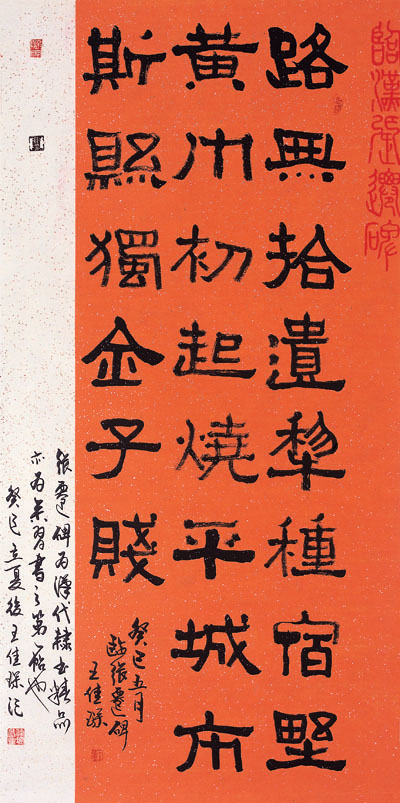 臨漢張遷碑
路無拾遺犂種宿墅
黃巾初起燒平城市
斯縣獨全子賤
癸巳五月
臨張遷碑
王佳琛
張遷碑為漢代隸書精品
亦為習書之第一帖也
癸巳立夏後王佳琛記